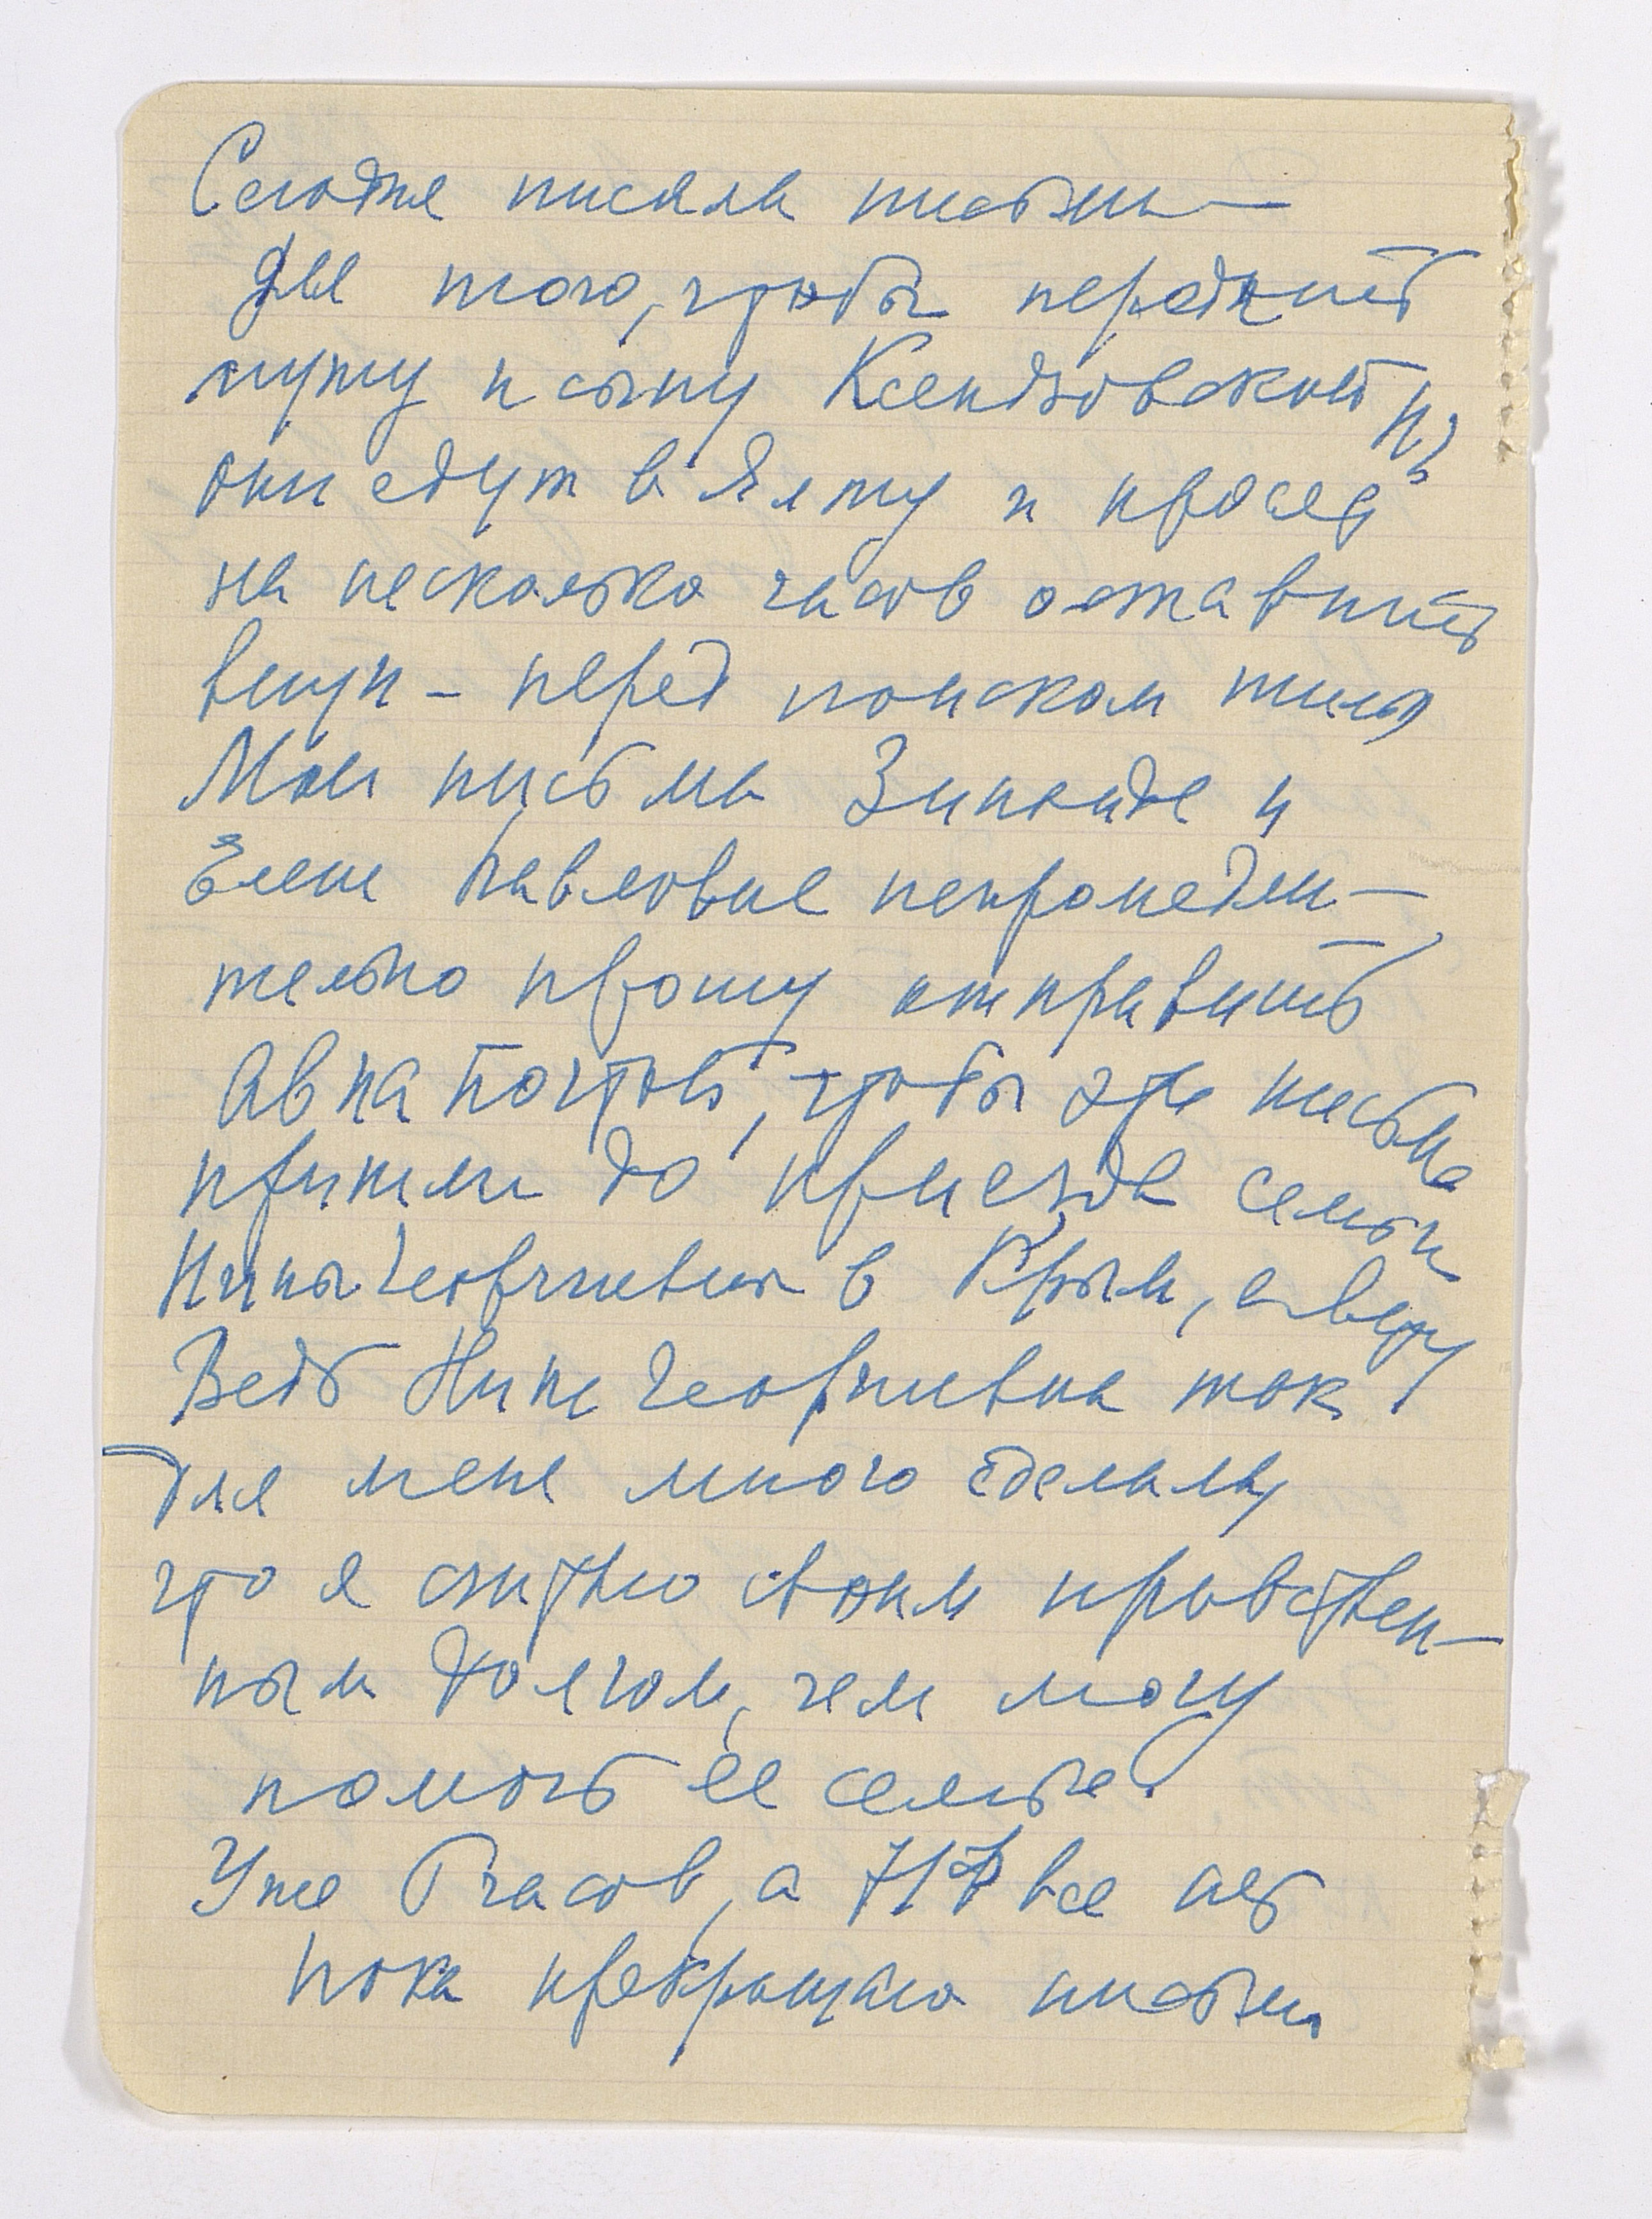 Сегодня писала письмы —
для того, чтобы передать
мужу и сыну Ксендзовской НГ
они едут в Ялту и просят
на несколько часов оставить
вещи – перед поиском жилья
Мои письма Зинаиде и
Елене Павловне непрамедли—
тельно прошу отправить
Авиа почтой, чтобы эти письма
пришли до приезда семьи
Нины Георгиевны в Крым,
Ведь Нина Георгиевна так
для меня много сделала,
что я считаю своим нравствен—
ным долгом, чем могу
помочь ее семье.
Уже часов, а все нет
пока прекращаю письмы